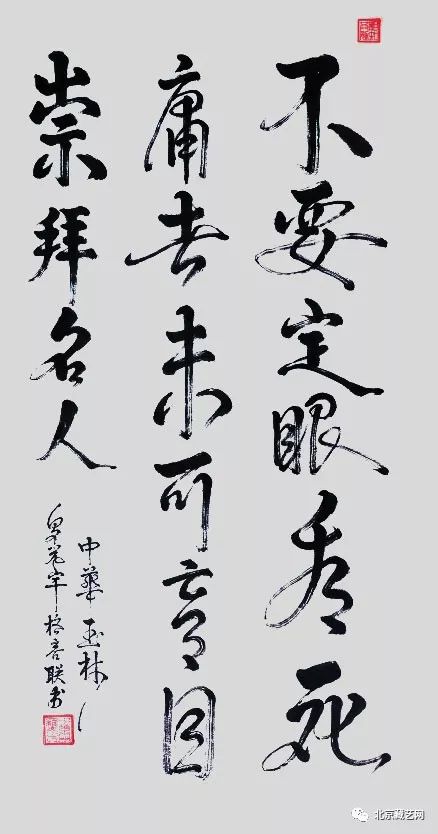 不要定眼看死
庸者未可盲目
崇拜名人
中華玉林
宇格言联书
北京藏艺网